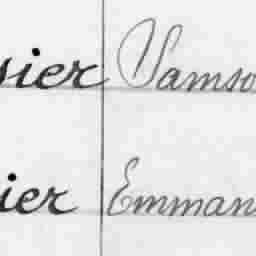 sier Samso
ier Emman